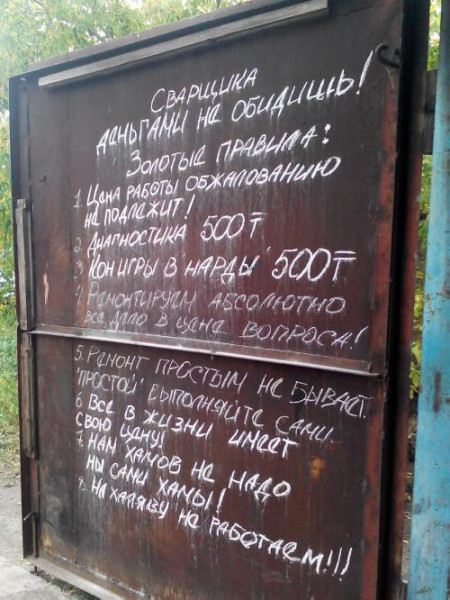 СВАРЩИКА
ДЕНЬГАМИ НЕ ОБИДИШЬ!
ЗОЛОТЫЕ ПРАВИЛА:
1. ЦЕНА РАБОТЫ ОБЖАЛОВАНИЮ
НЕ ПОДЛЕЖИТ!
2. ДИАГНОСТИКА 500 ₸
3 КОН ИГРЫ В НАРДЫ 500 ₸
4 РЕМОНТИРУЕМ АБСОЛЮТНО
ВСЕ, ДЕЛО В ЦЕНЕ ВОПРОСА!
5. РЕМОНТ ПРОСТЫМ НЕ БЫВАЕТ
"ПРОСТОЙ" ВЫПОЛНЯЙТЕ САМИ
6 ВСЕ В ЖИЗНИ ИМЕЕТ
СВОЮ ЦЕНУ!
7. НАМ ХАМОВ НЕ НАДО
МЫ САМИ ХАМЫ!
8. НА ХАЛЯВУ НЕ РАБОТАЕМ!!!